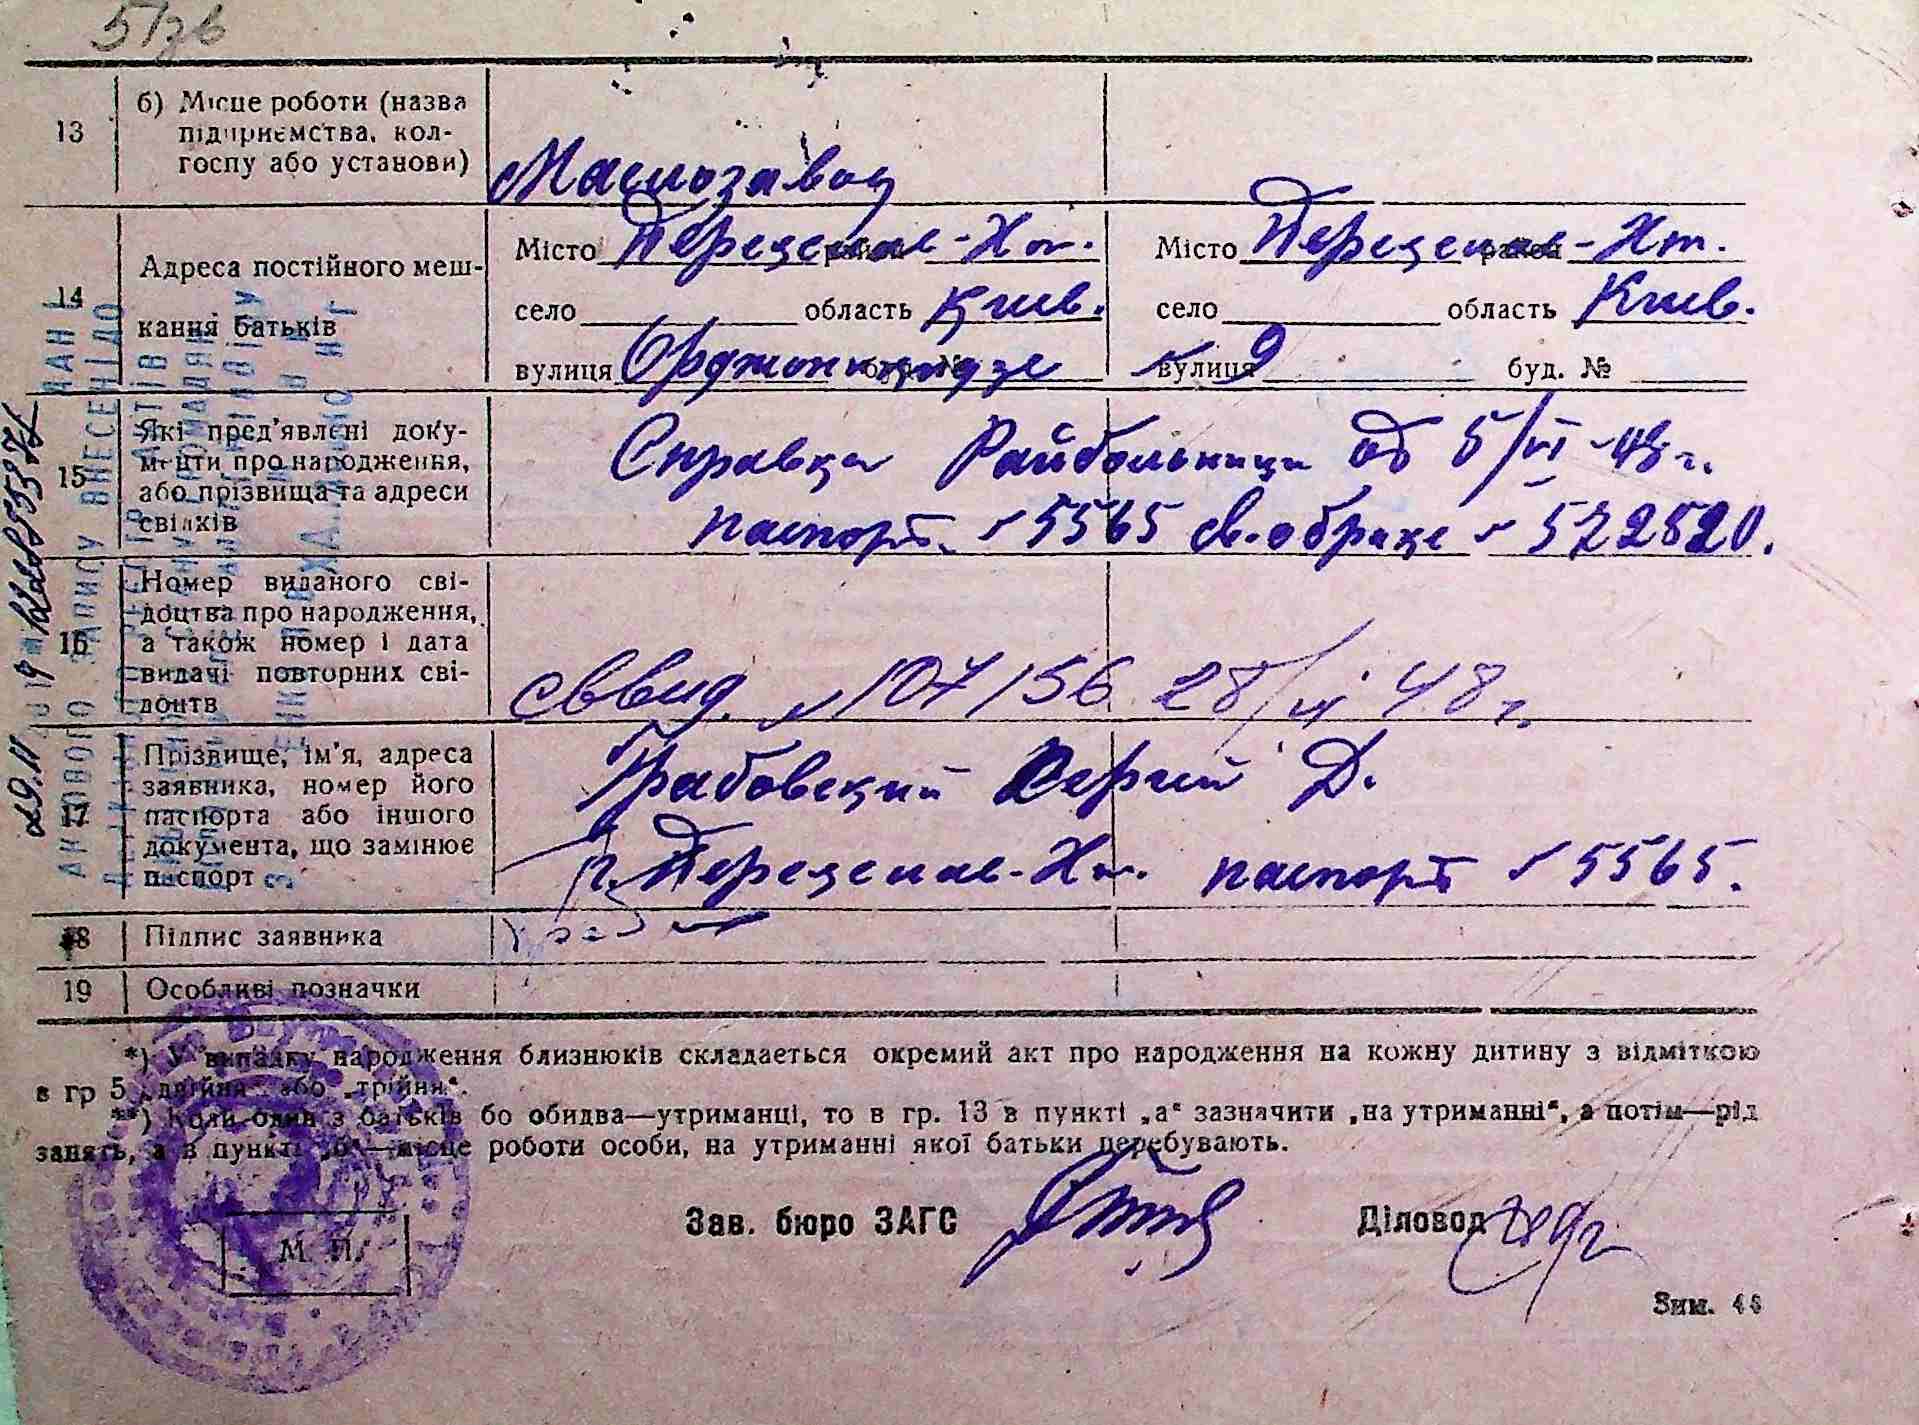 13
б) Місце роботи (назва
підприємства, кол-
госпу або установи)
Маслозавод
14
Адреса постійного меш-
кання батьків
Місто Переяслав-Хм.
село область Київ.
вулиця Орджоникидзе буд. №
Місто Переяслав-Хм.
село область Київ.
вулиця 9 буд. №
15
Які пред'явлені доку-
менти про народження,
або прізвища та адреси
свідків
Справка Райбольници об 5/VI-48 г.
паспорт. № 5565 св. о браке № 572820.
16
Номер виданого сві-
доцтва про народження,
а також номер і дата
видачі повторних сві-
доцтв
№ 107156 28/VI 48 г.
17
Прізвище, ім'я, адреса
заявника, номер його
паспорта або іншого
документа, що замінює
паспорт
Грабовский Сергий Д.
г. Переяслав-Хм. паспорт № 5565.
18
Підпис заявника
19
Особливі позначки
*) У випадку народження близнюків складається окремий акт про народження на кожну дитину з відміткою
в гр 5 „двійня" або „трійня".
**) Коли один з батьків бо обидва—утриманці, то в гр. 13 в пункті „а" зазначити „на утриманні", а потім—рід
занять, а в пункті „б"—місце роботи особи, на утриманні якої батьки перебувають.
Зав. бюро ЗАГС
Діловод
М. П.
Зим.